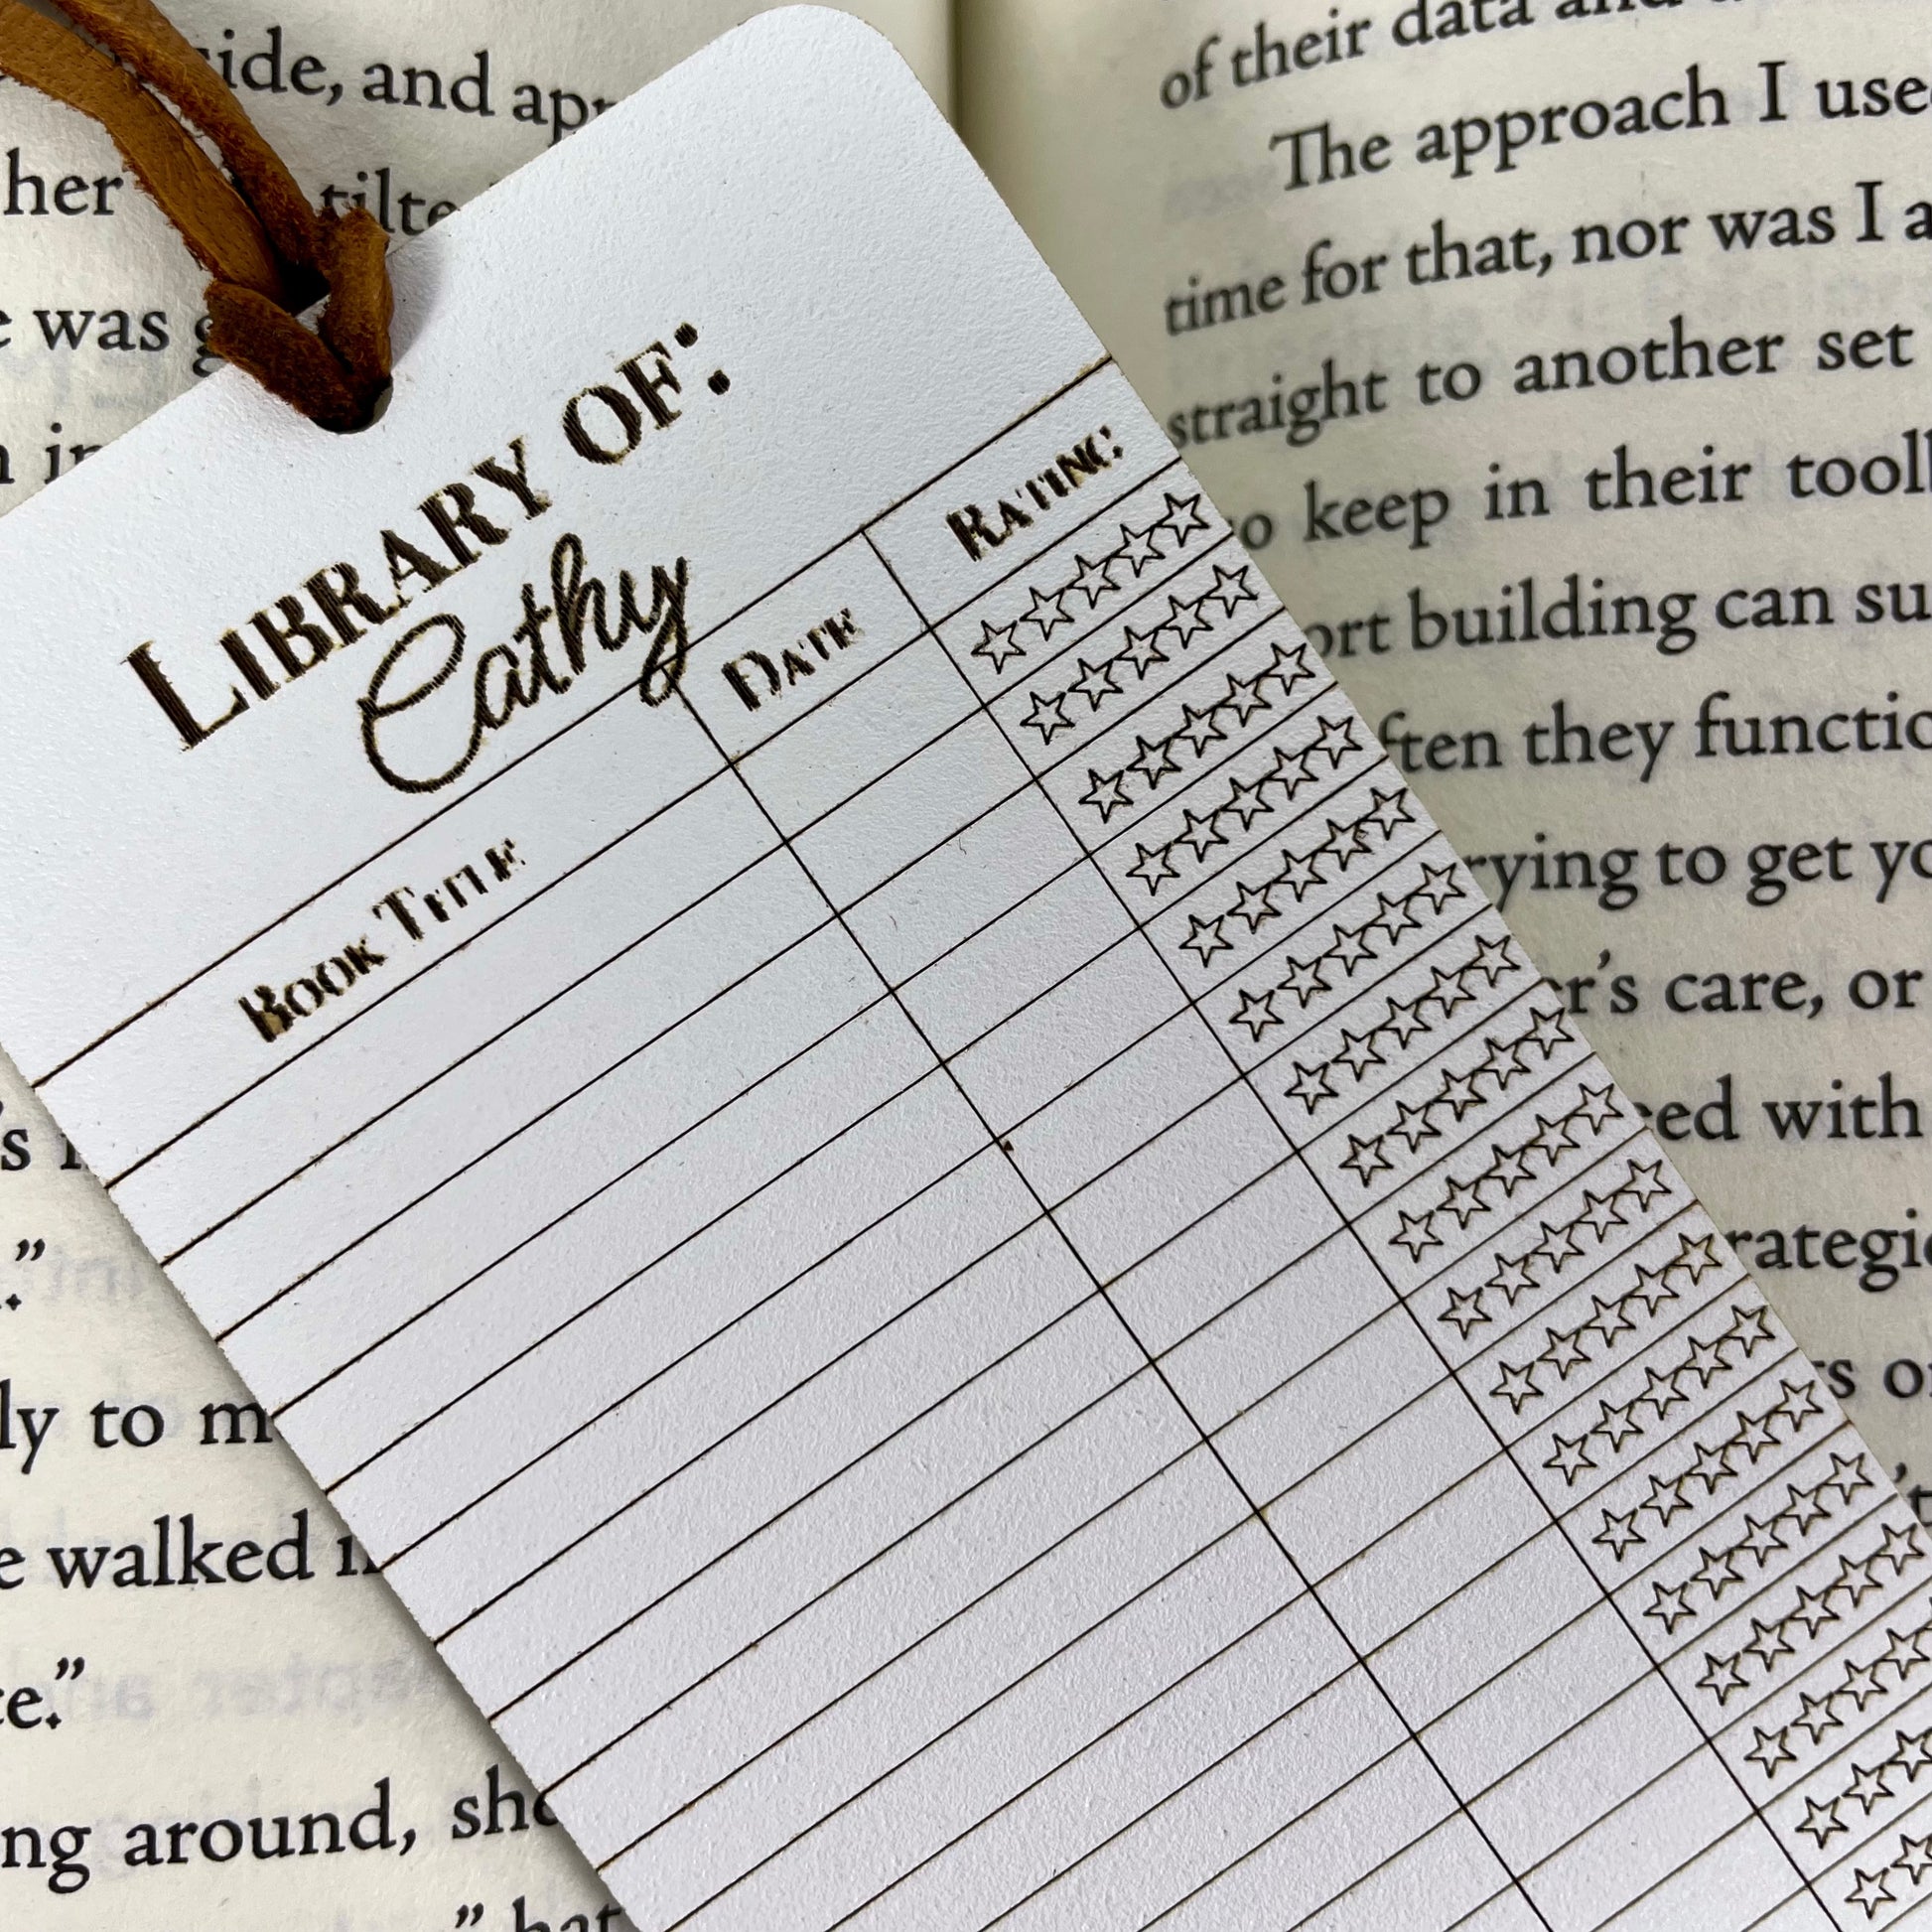 LIBRARY OF:
Cathy
BOOK TITLE DATE RATING
side, and
her tilte
e was
to m
e walked
ng around, she
of their data and
The approach I used
time for that, nor was I a
straight to another set
to keep in their tool
ort building can su
ften they functio
rying to get yo
r's care, or
eed with
rategi
s o